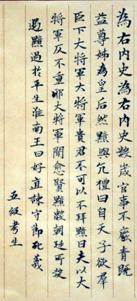 為右內史為右內史數歲官事不廢青既
益尊姊為皇后然黯與亢禮曰自天子欲羣
臣下大將軍大將軍貴君不可以不拜黯曰夫以大
將軍反不重耶大將軍聞愈賢黯數朝廷所疑
遇黯過於平生淮南王曰好直諫守節死義
五經考生